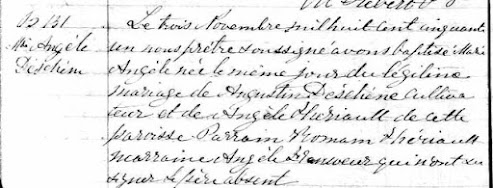 B 131
Mie Angèle
Deschène
Le trois Novembre mil huit cent cinquante
un nous prêtre soussigné avons baptisé Marie
Angèle née le même jour du légitime
mariage de Augustin Deschène Cultiva
teur et de Angèle Thériault de cette
paroisse Parrain Romain Thériault
marraine Angèle qui n'ont su
signer le père absent